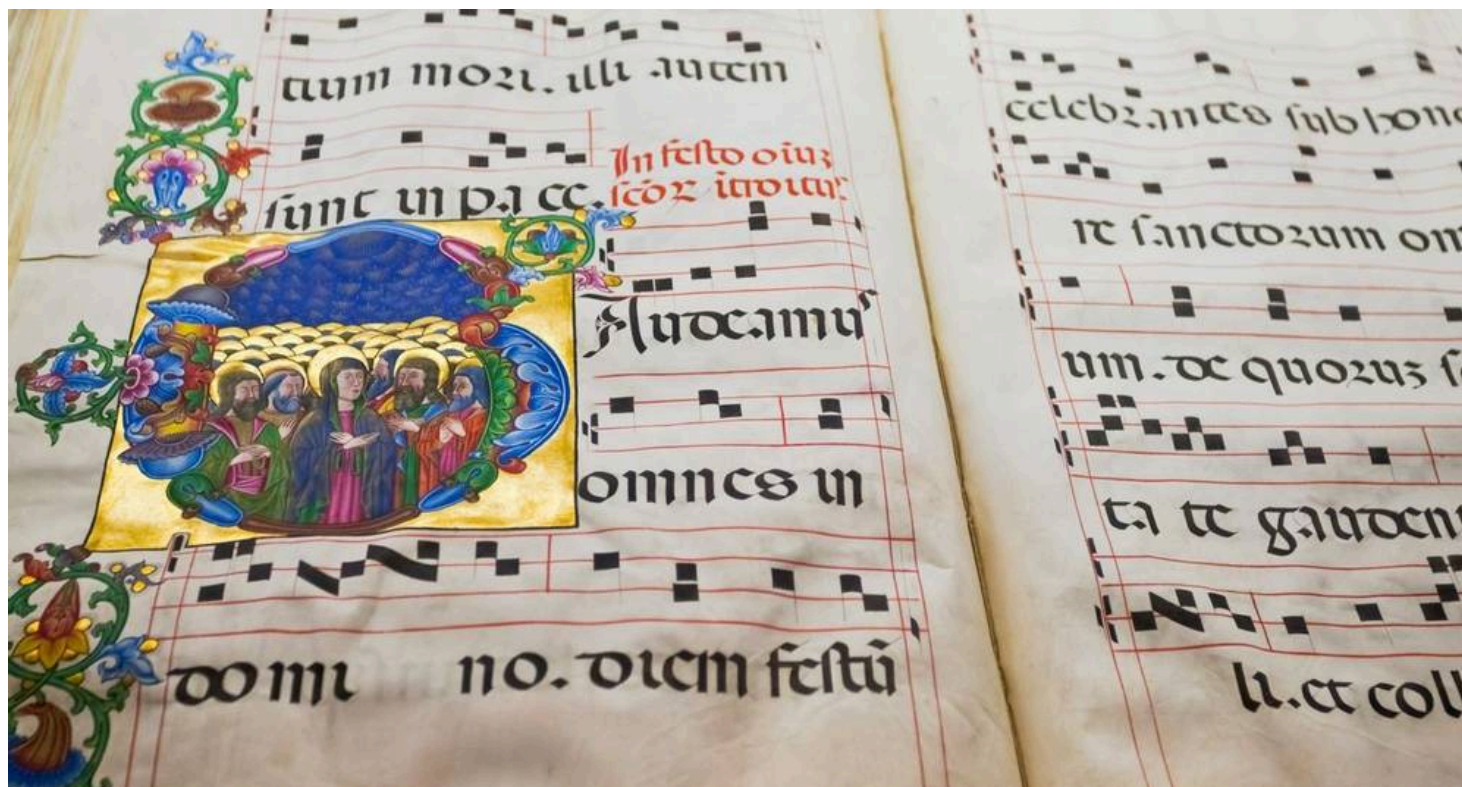 tium mori. illi autem
sunt in pa ce.
In festo oīuʒ
scōꝝ itroitus
Audeamus
omnes in
domi no. diem festū
celebrantes sub hono
re sanctorum om
um. de quoruʒ s
ta te gauden
li. et coll